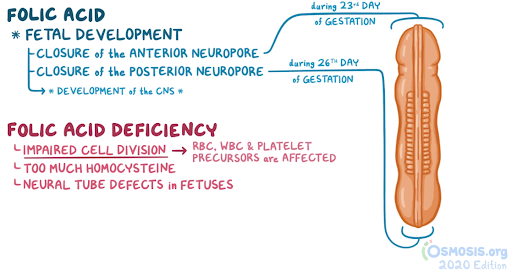 FOLIC ACID
* FETAL DEVELOPMENT
CLOSURE of the ANTERIOR NEUROPORE
during 23RD DAY
of GESTATION
CLOSURE of the POSTERIOR NEUROPORE
during 26TH DAY
of GESTATION
* DEVELOPMENT of the CNS *
FOLIC ACID DEFICIENCY
IMPAIRED CELL DIVISION → RBC, WBC & PLATELET
PRECURSORS are AFFECTED
TOO MUCH HOMOCYSTEINE
NEURAL TUBE DEFECTS in FETUSES
OSMOSIS.org
2020 Edition